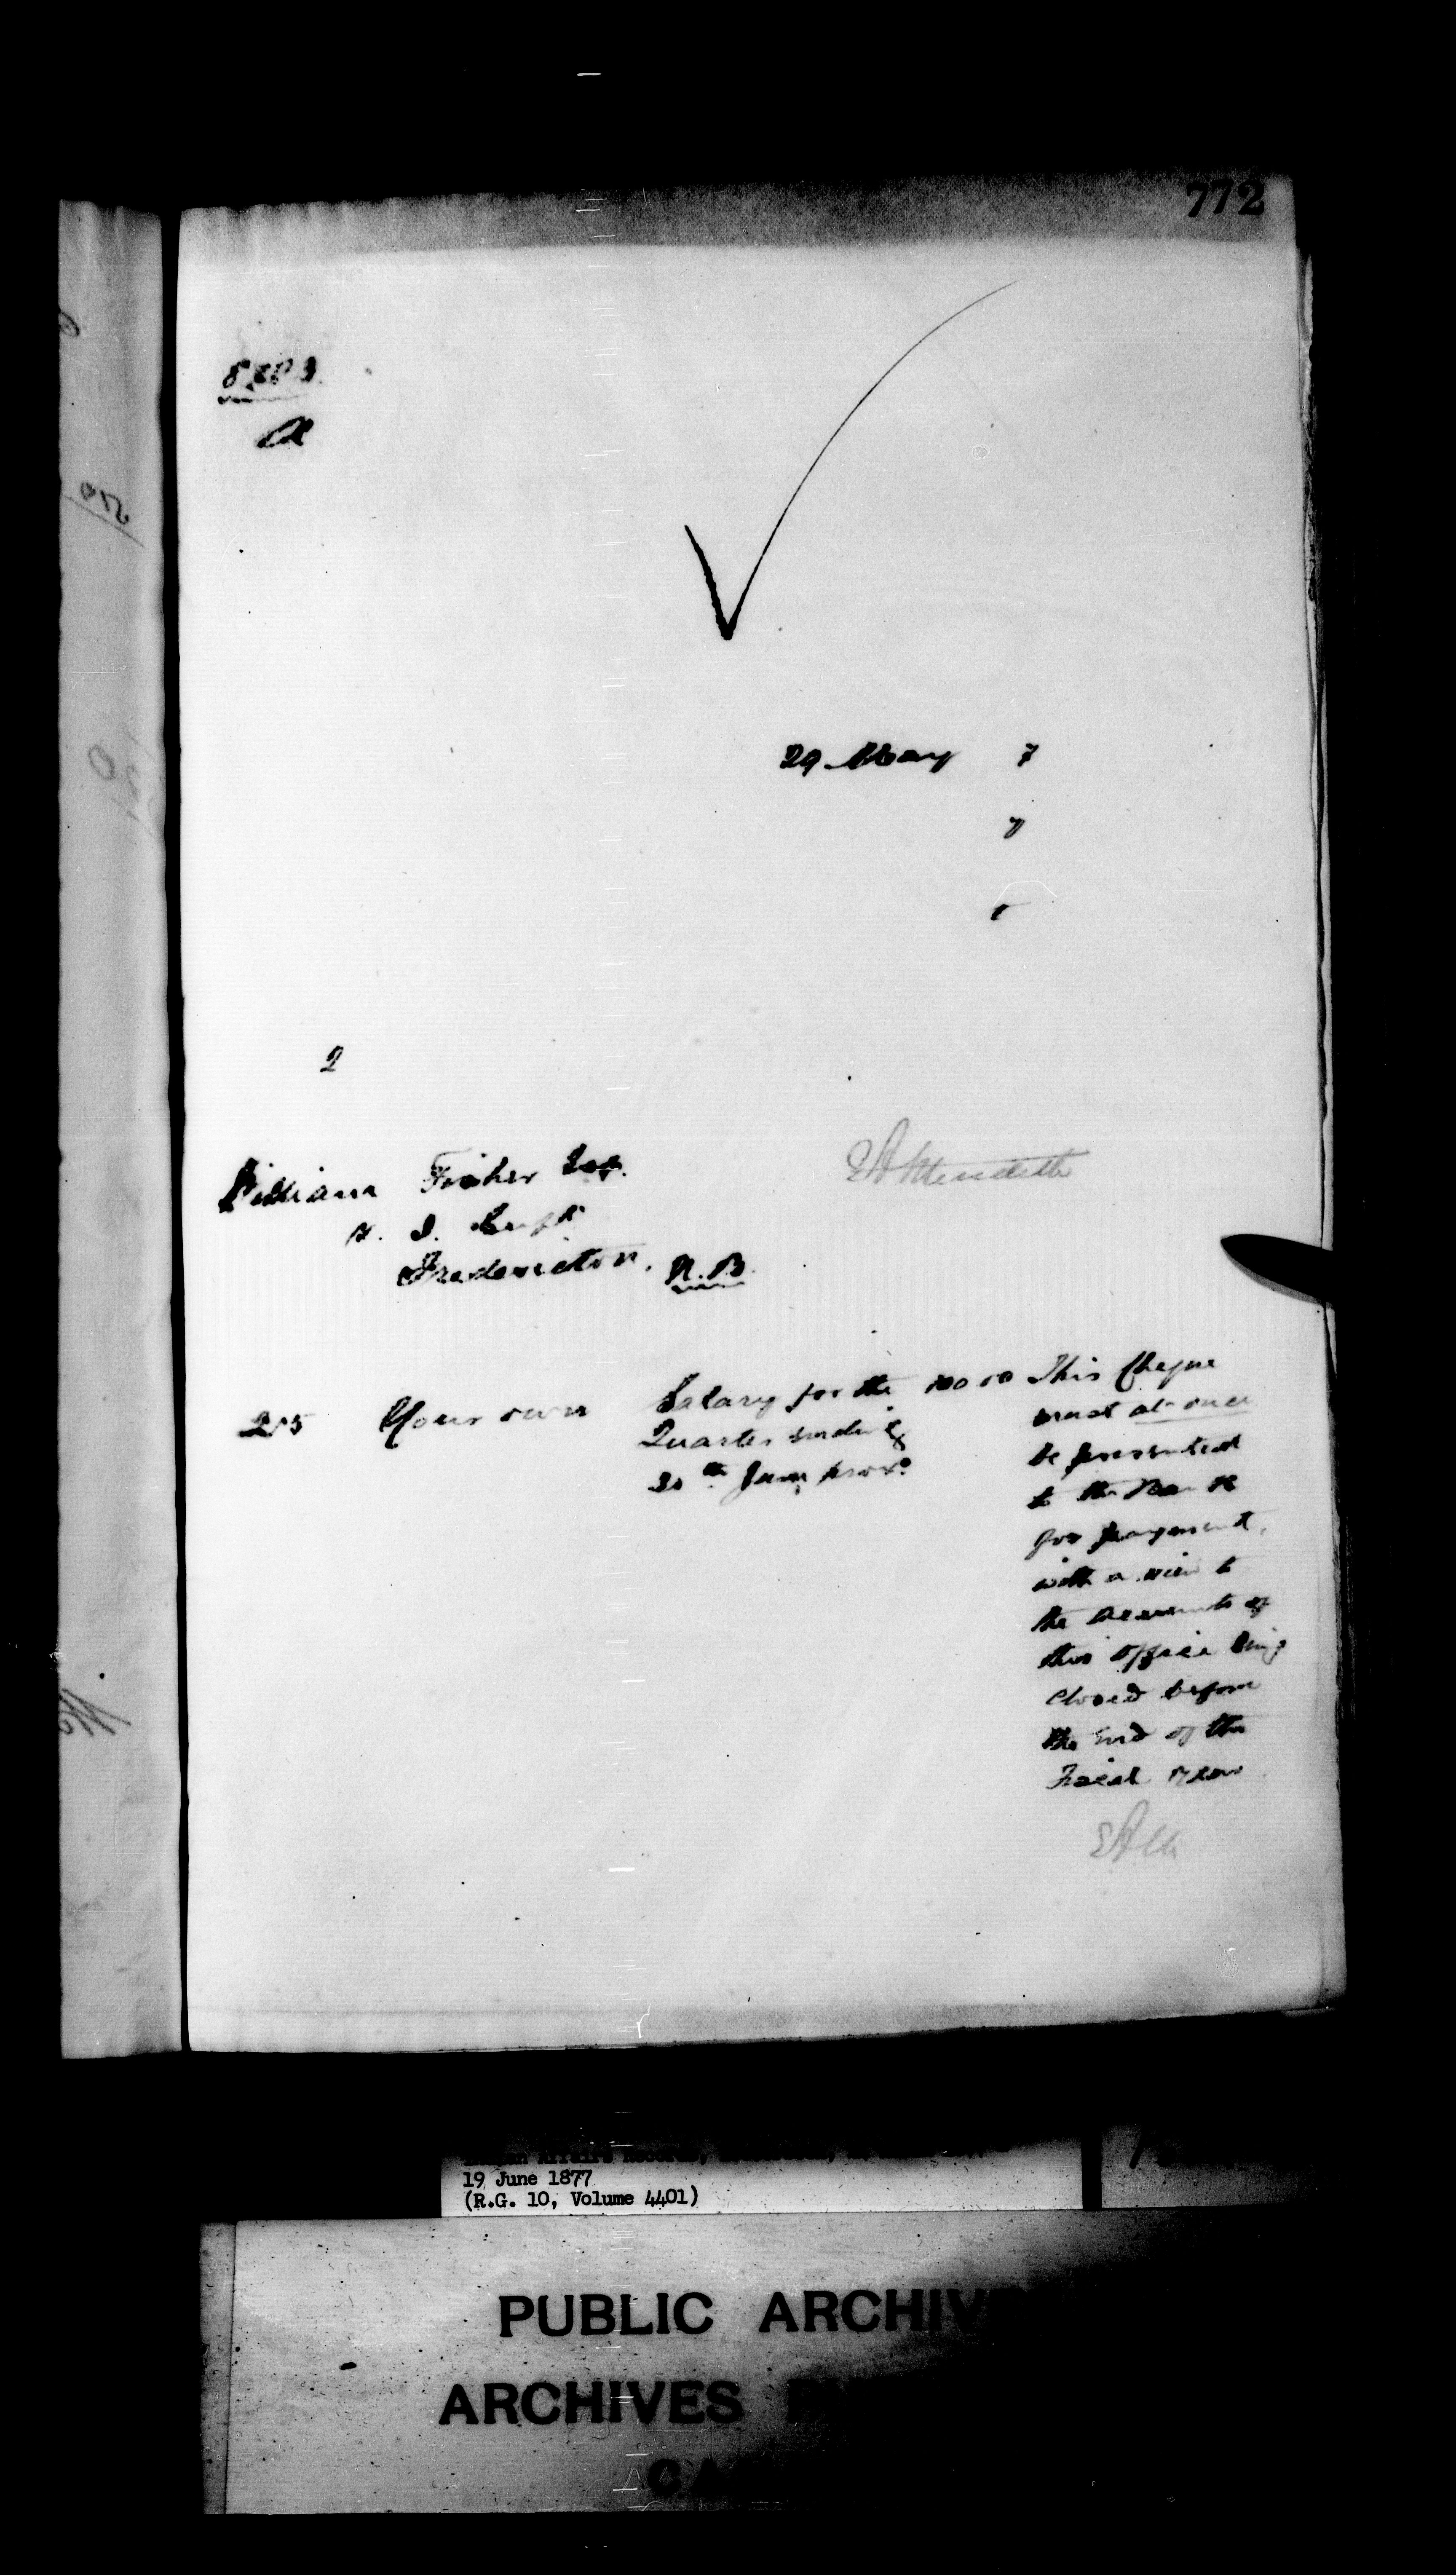 772
8803
a
29 May 7
7
2
William Fisher Esq.
I. Supt
Fredericton, N.B.
EA Meredith
215 Your own Salary for the 100 00 This Cheque
Quarter ending must at once
30th June prox° be presented
to the Bank
for payment,
with a view to
the accounts of
this Office being
closed before
the end of the
Fiscal Year
EAM
19 June 1877
(R.G. 10, Volume 4401)
PUBLIC ARCHIV
ARCHIVES
CA